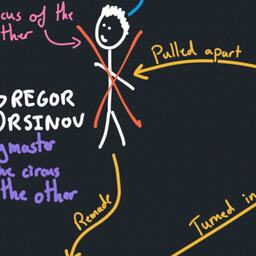 cus of the
ther
Pulled apart
REGOR
ORSINOV
gmaster
he circus
the other
Remade
Turned in